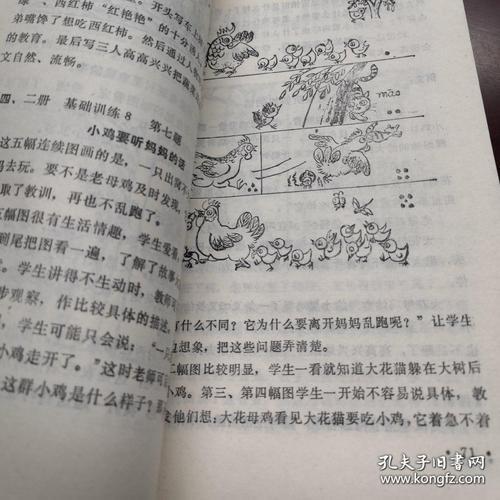 、西红柿“红艳艳”的十分
弟嘴馋了想吃西红柿。然后通过
的教育。最后写三人高高兴兴把
文自然、流畅。
四、二册 基础训练8 第七题
小鸡要听妈妈的话
这五幅连续图画的是，一只出
去玩。要不是老母鸡及时发现，
取了教训，再也不乱跑了。
五幅图很有生活情趣，学生爱
到尾把图看一遍，了解了故事
。学生讲得不生动时，教师
步观察，作比较具体的描述，
，学生可能只会说：“一
小鸡走开了。”这时老师可
这群小鸡是什么样子？
māo
有什么不同？它为什么要离开妈妈乱跑呢？”让学生
想象，把这些问题弄清楚。
二幅图比较明显，学生一看就知道大花猫躲在大树后
小鸡。第三、第四幅图学生一开始不容易说具体，教
他们想：大花母鸡看见大花猫要吃小鸡，它着急不着
·71·
孔夫子旧书网
www.kongfz.com